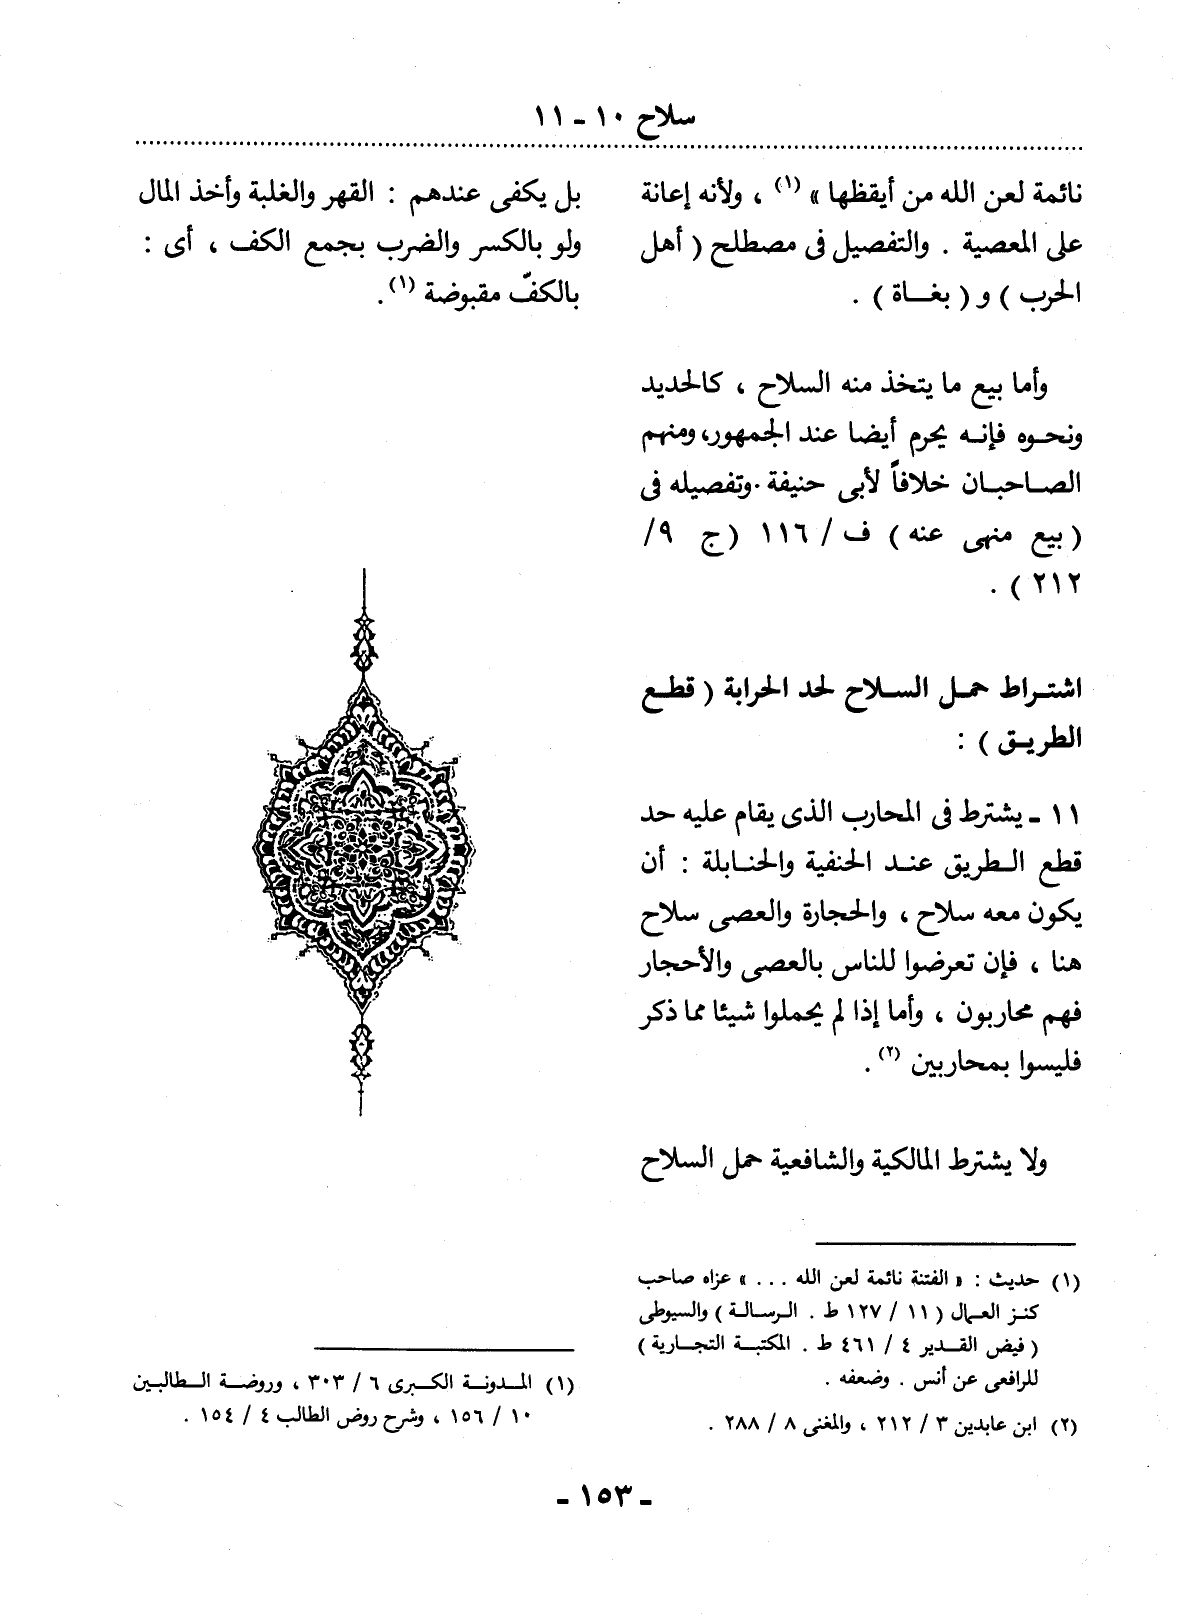 سلاح ١٠ - ١١
نائمة لعن الله من أيقظها » (١) ، ولأنه إعانة
على المعصية . والتفصيل فى مصطلح ( أهل
الحرب ) و ( بغـــاة ) .
وأما بيع ما يتخذ منه السلاح ، كالحديد
ونحـوه فإنـه يحرم أيضا عند الجمهور، ومنهم
الصـاحبـان خلافاً لأبى حنيفة . وتفصيله فى
( بيع منهى عنه ) ف / ١١٦ (ج ٩/
٢١٢ ) .
اشتـراط حمـل السـلاح لحد الحرابة ( قطـع
الطريـق ) :
١١ - يشترط فى المحارب الذى يقام عليه حد
قطع الـطريق عنـد الحنفية والحنـابلة : أن
يكون معه سلاح ، والحجارة والعصى سلاح
هنا ، فإن تعرضوا للناس بالعصى والأحجار
فهم محاربون ، وأما إذا لم يحملوا شيئا مما ذكر
فليسوا بمحاربين (٢) .
ولا يشترط المالكية والشافعية حمل السلاح
(١) حديث : « الفتنة نائمة لعن الله . . . » عزاه صاحب
كنـز العـمال ( ١١ / ١٢٧ ط . الـرسـالـة ) والسيوطى
( فيض القـدير ٤ / ٤٦١ ط . المكتبـة التجـارية )
للرافعى عن أنس . وضعفه .
(٢) ابن عابدين ٣ / ٢١٢ ، والمغنى ٨ / ٢٨٨ .
بل يكفى عندهم : القهر والغلبة وأخذ المال
ولو بالكسر والضرب بجمع الكف ، أى :
بالكفّ مقبوضة (١) .
(١) المـدونـة الكـبرى ٦ / ٣٠٣ ، وروضـة الـطالبـين
١٠ / ١٥٦ ، وشرح روض الطالب ٤ / ١٥٤ .
- ١٥٣ -